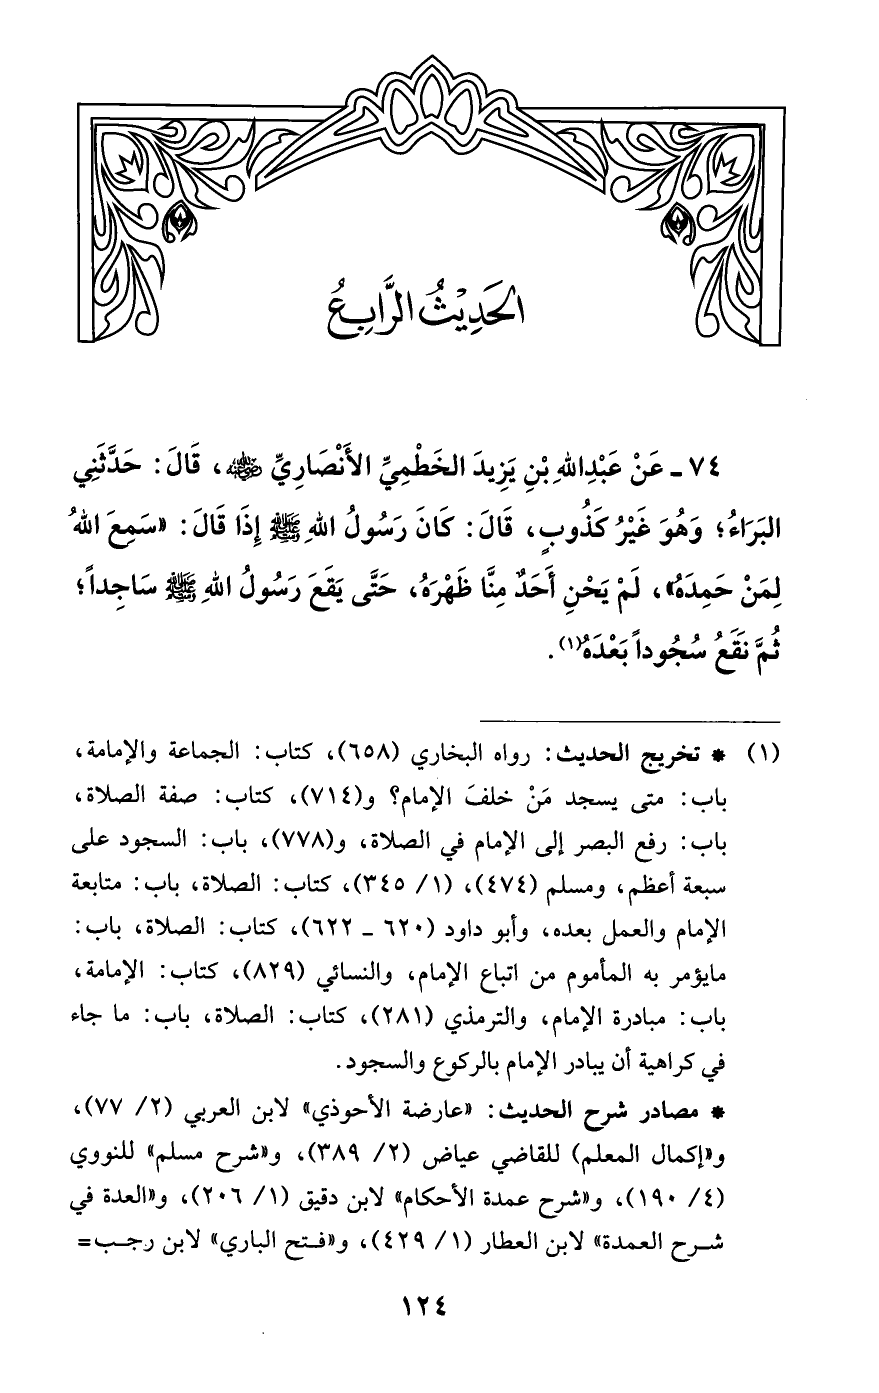 الحَدِيْثُ الرَّابِعُ
٧٤ ـ عَنْ عَبْدِاللهِ بْنِ يَزِيدَ الخَطْمِيِّ الأَنْصَارِيِّ رضي الله عنه، قَالَ: حَدَّثَنِي
البَرَاءُ؛ وَهُوَ غَيْرُ كَذُوبٍ، قَالَ: كَانَ رَسُولُ اللهِ ﷺ إِذَا قَالَ: «سَمِعَ اللهُ
لِمَنْ حَمِدَهُ»، لَمْ يَحْنِ أَحَدٌ مِنَّا ظَهْرَهُ، حَتَّى يَقَعَ رَسُولُ اللهِ ﷺ سَاجِداً؛
ثُمَّ نَقَعُ سُجُوداً بَعْدَهُ(١).
(١) * تخريج الحديث: رواه البخاري (٦٥٨)، كتاب: الجماعة والإمامة،
باب: متى يسجد مَنْ خلفَ الإمام؟ و(٧١٤)، كتاب: صفة الصلاة،
باب: رفع البصر إلى الإمام في الصلاة، و(٧٧٨)، باب: السجود على
سبعة أعظم، ومسلم (٤٧٤)، (١/ ٣٤٥)، كتاب: الصلاة، باب: متابعة
الإمام والعمل بعده، وأبو داود (٦٢٠ ـ ٦٢٢)، كتاب: الصلاة، باب:
مايؤمر به المأموم من اتباع الإمام، والنسائي (٨٢٩)، كتاب: الإمامة،
باب: مبادرة الإمام، والترمذي (٢٨١)، كتاب: الصلاة، باب: ما جاء
في كراهية أن يبادر الإمام بالركوع والسجود.
* مصادر شرح الحديث: «عارضة الأحوذي» لابن العربي (٢/ ٧٧)،
و«إكمال المعلم) للقاضي عياض (٢/ ٣٨٩)، و«شرح مسلم» للنووي
(٤/ ١٩٠)، و«شرح عمدة الأحكام» لابن دقيق (١/ ٢٠٦)، و«العدة في
شرح العمدة» لابن العطار (١/ ٤٢٩)، و«فتح الباري» لابن رجب=
١٢٤